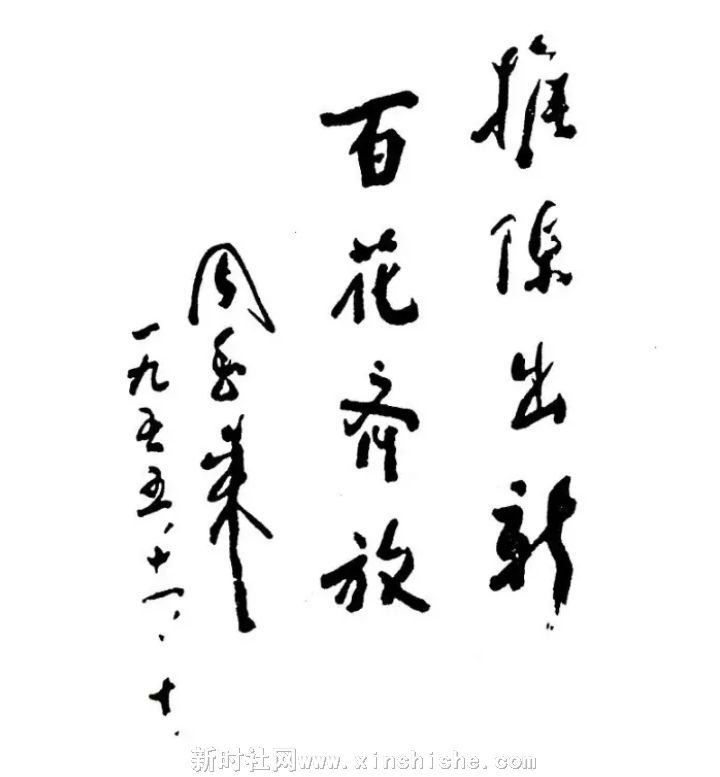 推陈出新
百花齐放
周恩来
一九五五、十一、十、
新时社网www.xinshishe.com